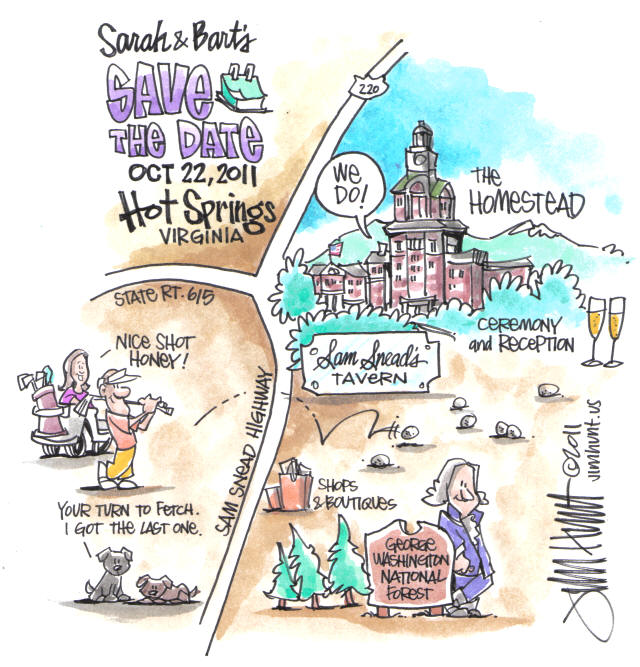 Sarah & Bart's
SAVE
THE DATE
OCT 22, 2011
Hot Springs
VIRGINIA
220
WE
DO!
THE
HOMESTEAD
STATE RT. 615
CEREMONY
and RECEPTION
NICE SHOT
HONEY!
Sam Snead's
TAVERN
SAM SNEAD HIGHWAY
SHOPS
& BOUTIQUES
YOUR TURN TO FETCH.
I GOT THE LAST ONE.
GEORGE
WASHINGTON
NATIONAL
FOREST
Jim Hunt
©2011
jimhunt.us